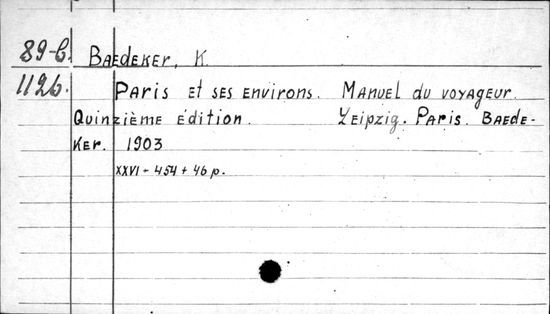 89-6. Baedeker, K.
1126. Paris et ses environs. Manuel du voyageur.
Quinzième édition. Leipzig. Paris. Baede-
ker. 1903
XXVI + 454 + 46 p.